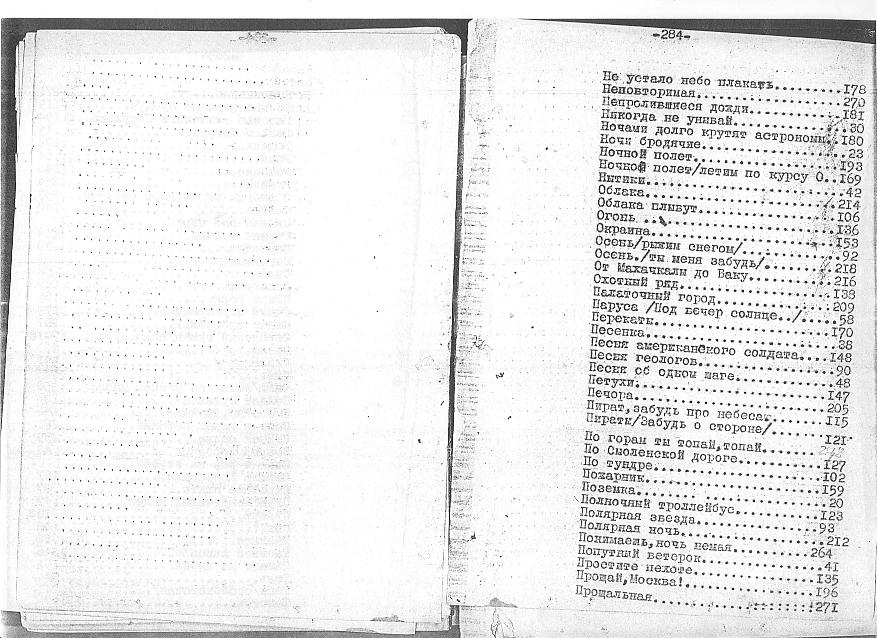 -284-
Не устало небо плакать.........178
Неповторимая...................270
Непролившиеся дожди............181
Никогда не унывай..............30
Ночами долго крутят астрономы..180
Ночи бродячие..................23
Ночной полет...................193
Ночной полет/летим по курсу О..169
Нытики.........................42
Облака.........................214
Облака плывут..................106
Огонь ...136
Окраина........................153
Осень/рыжим снегом/............92
Осень./ты меня забудь/.........218
От Махачкалы до Баку...........216
Охотный ряд....................138
Палаточный город...............209
Паруса /Под вечер солнце../....58
Перекаты.......................170
Песенка........................38
Песня американского солдата....148
Песня геологов.................90
Песня об одном шаге............48
Петухи.........................147
Печора.........................205
Пират,забудь про небеса........115
Пираты/Забудь о стороне/.......121
По горам ты топай,топай........
По Смоленской дороге...........127
По тундре......................102
Пожарник.......................159
Поземка........................20
Полночный троллейбус...........123
Полярная звезда................93
Полярная ночь..................212
Понимаешь,ночь немая...........264
Попутный ветерок...............41
Простите пехоте................135
Прощай,Москва!.................196
Прощальная.....................271